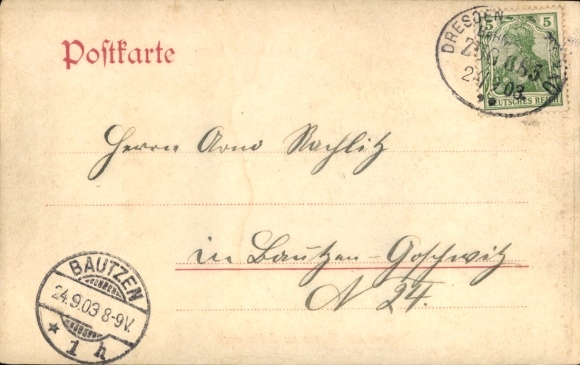 Postkarte
DRESDEN
ZUG 653
24.9.03.
5 5
DEUTSCHES REICH
Herrn Arno Rachlitz
in Bautzen-Goschwitz
N 24.
BAUTZEN
24.9.03 8-9V.
* 1 h